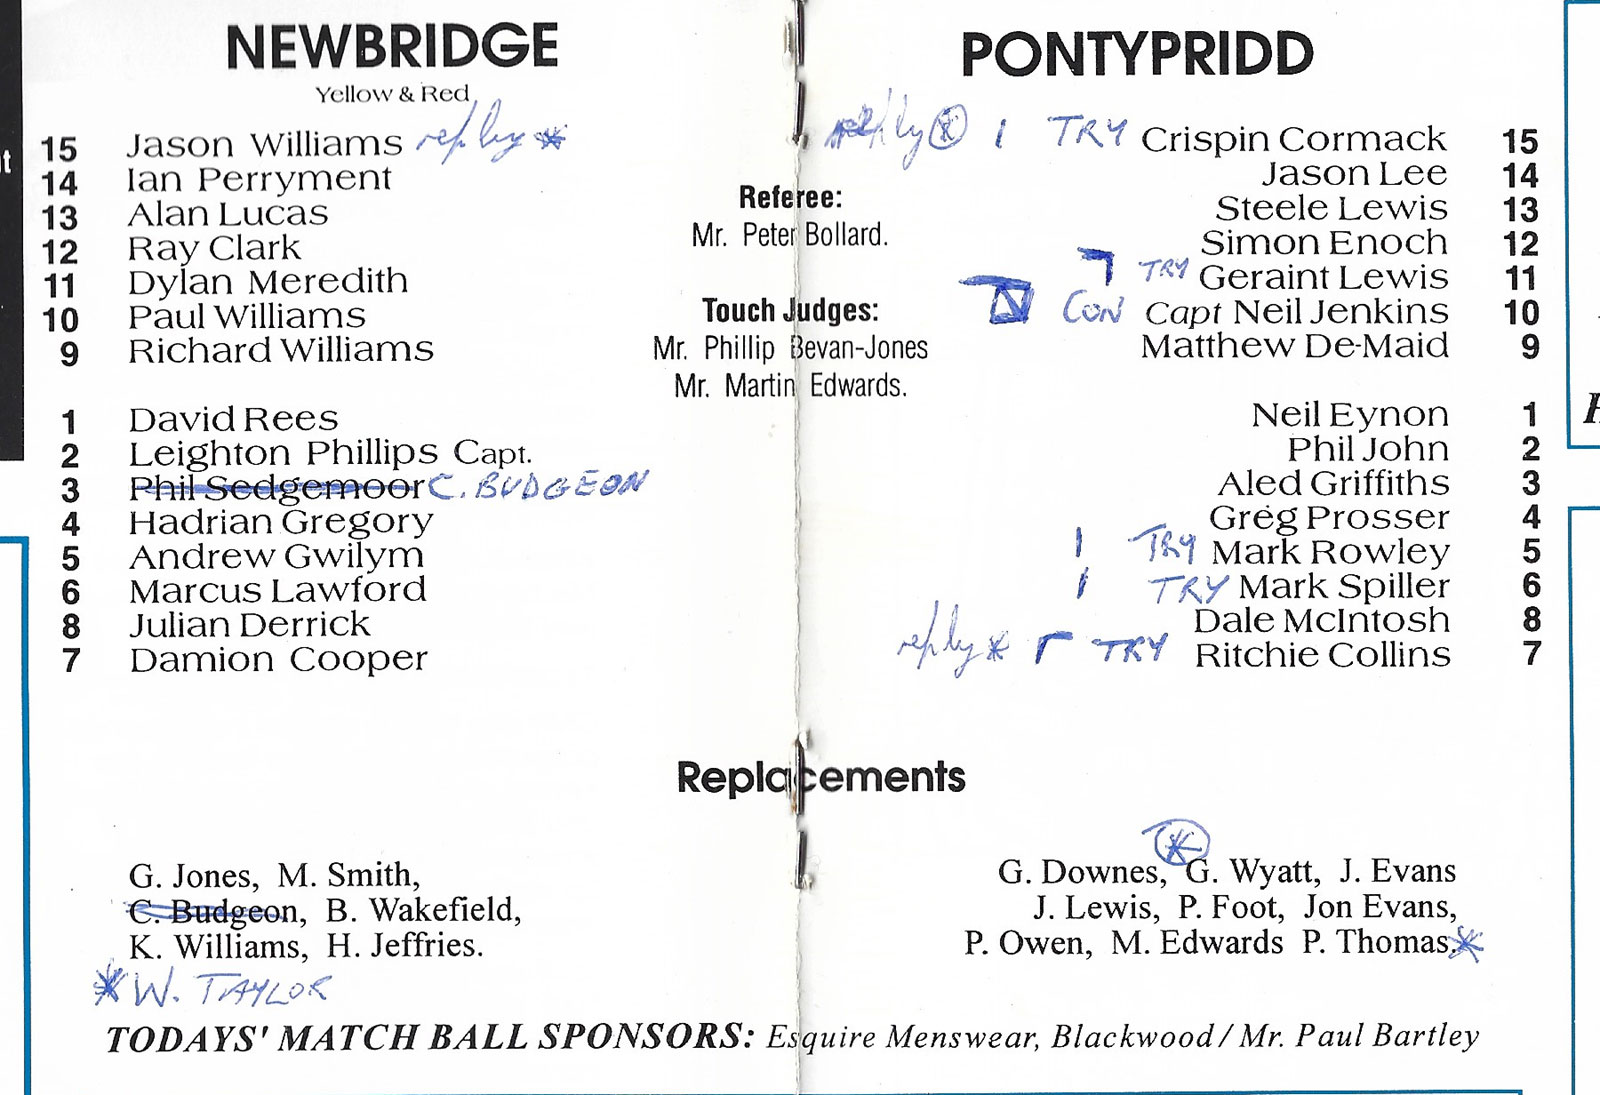 NEWBRIDGE
Yellow & Red
15 Jason Williams reply *
14 Ian Perryment
13 Alan Lucas
12 Ray Clark
11 Dylan Meredith
10 Paul Williams
9 Richard Williams
1 David Rees
2 Leighton Phillips Capt.
3 Phil Sedgemoor C. BUDGEON
4 Hadrian Gregory
5 Andrew Gwilym
6 Marcus Lawford
8 Julian Derrick
7 Damion Cooper
Referee:
Mr. Peter Bollard.
Touch Judges:
Mr. Phillip Bevan-Jones
Mr. Martin Edwards.
PONTYPRIDD
reply * 1 TRY Crispin Cormack 15
Jason Lee 14
Steele Lewis 13
Simon Enoch 12
TRY Geraint Lewis 11
CON Capt Neil Jenkins 10
Matthew De-Maid 9
Neil Eynon 1
Phil John 2
Aled Griffiths 3
Greg Prosser 4
1 TRY Mark Rowley 5
1 TRY Mark Spiller 6
Dale McIntosh 8
reply * TRY Ritchie Collins 7
Replacements
G. Jones, M. Smith,
C. Budgeon, B. Wakefield,
K. Williams, H. Jeffries.
* W. TAYLOR
*
G. Downes, G. Wyatt, J. Evans
J. Lewis, P. Foot, Jon Evans,
P. Owen, M. Edwards P. Thomas. *
TODAYS' MATCH BALL SPONSORS: Esquire Menswear, Blackwood / Mr. Paul Bartley